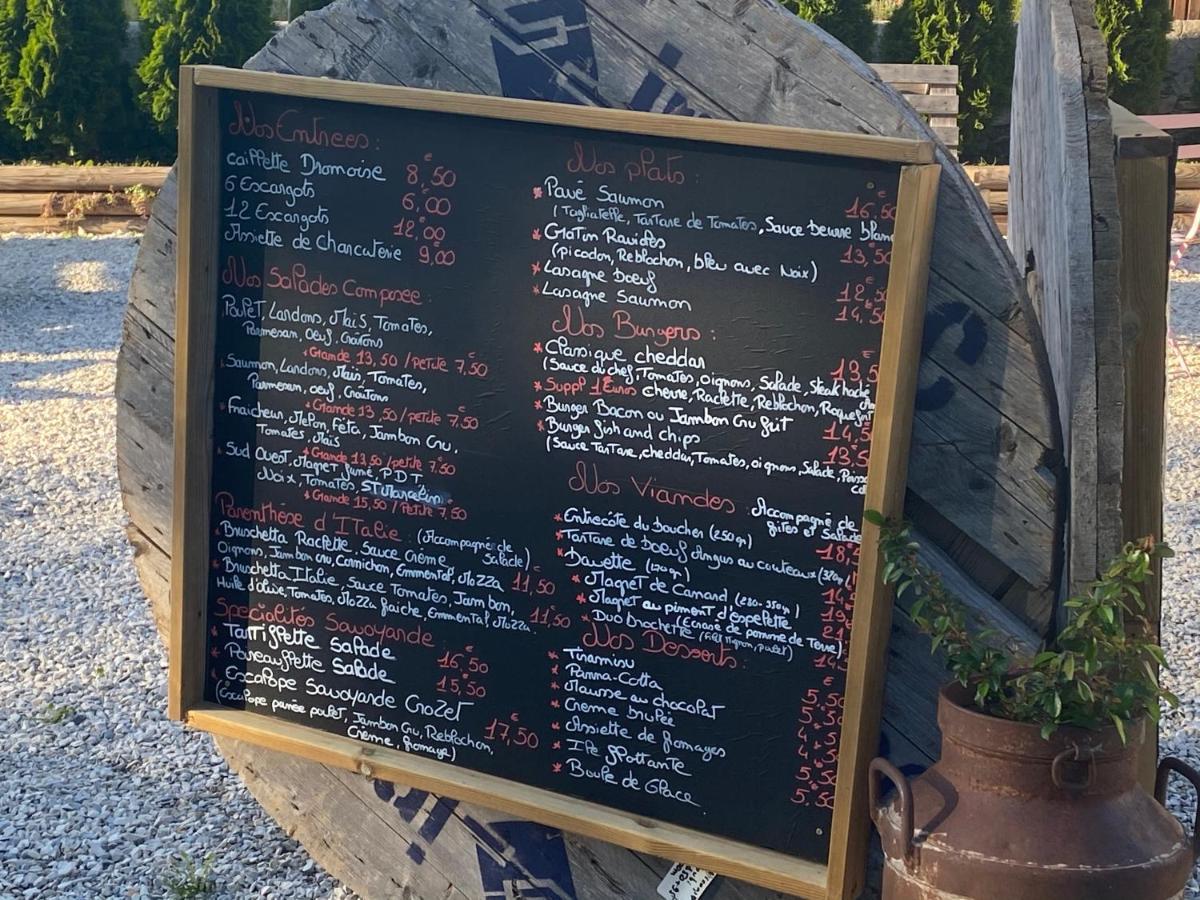 Nos Entrees :
caillette Dromoise 8€,50
6 Escargots 6€,00
12 Escargots 12€,00
Assiette de Charcuterie 9€,00
Nos Salades Composee :
Poulet, Lardons, Maïs, Tomates,
Parmesan, Oeuf, Croûtons
* Grande 13,50 / petite 7,50
Saumon, Lardons, Maïs, Tomates,
Parmesan, oeuf, Croûtons
* Grande 13,50 / petite 7,50
Fraicheur, Melon, Féta, Jambon Cru,
Tomates, Maïs
* Grande 13,50 / petite 7,50
Sud Ouest, Magret fumé, P D T,
Noix, Tomates, ST Marcellin
* Grande 15,50 / Petite 7,50
Parenthèse d'ITalie : (Accompagnée de
Salade)
* Bruschetta Raclette, Sauce Crème
Oignons, Jambon cru, Cornichon, Emmental, Mozza 11€,50
* Bruschetta Italie, Sauce Tomates, Jambon,
Huile d'olive, Tomates, Mozza fraiche, Emmental, Mozza. 11,50
Spécialités Savoyarde
* Tartiflette Salade 16€,50
* Raviauflette Salade 15€,50
* Escalope Savoyarde Crozet
(Escalope panée poulet, Jambon Cru, Reblochon, 17€,50
Crème, fromage)
Nos plats :
* Pavé Saumon 16,50
(Tagliatelle, Tartare de Tomates, Sauce beurre blanc
* Gratin Ravioles 13,50
(picodon, Reblochon, bleu avec Noix)
* Lasagne boeuf 12,50
* Lasagne Saumon 14,50
Nos Burgers :
* Classique cheddar 13,5
(Sauce du chef, Tomates, oignons, Salade, steak haché
* Suppl 1 Euros chèvre, Raclette, Reblochon, Roquefort
* Burger Bacon ou Jambon Cru grit 14,5
* Burger fish and chips 13,5
(Sauce Tartare, cheddar, Tomates, oignons, Salade, Poisso
Nos Viandes : Accompagné de
frites et Salade
* Entrecôte du boucher (250 gr) 18,
* Tartare de boeuf Angus au couteaux
* Bavette
* Magret de Canard (280-350gr)
* Magret au piment d'espelette
(Ecrasé de pomme de Terre)
* Duo brochette (filet mignon, poulet) 14,
Nos Desserts :
* Tiramisu 5,50
* Panna-Cotta
* Mousse au chocolat
* Creme brulée
* Assiette de fromages
* Ile flottante 5,50
* Boule de Glace